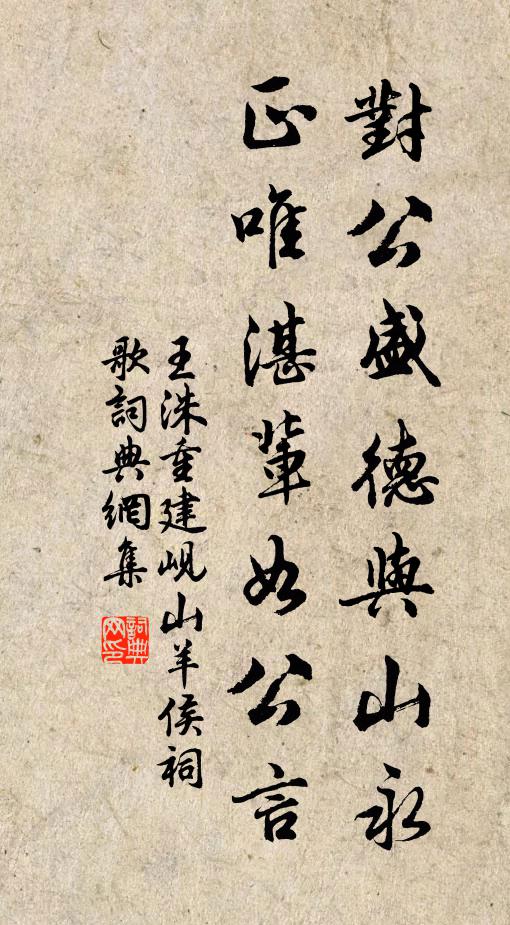 對公盛德與山永
正唯湛輩如公言
王洙重建峴山羊侯祠
歌詞典網集
詞典
网印